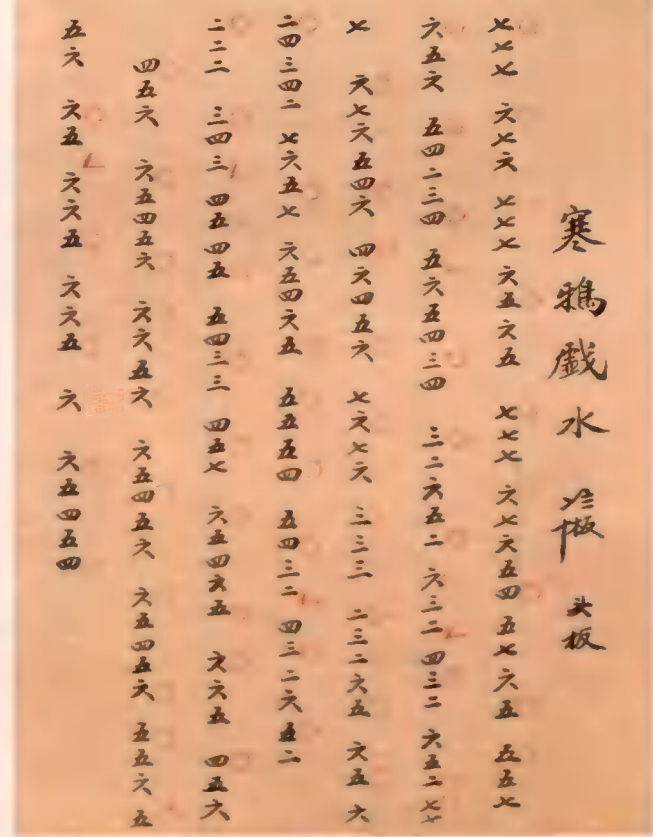 寒鴉戲水 头板
七七七 六七六 七七七 六五六五 七七七 六七六五四 五七 六五 五五七
六五六 五四二三四 五六五四三四 三二六五二 六三二 四三二 六五二七七
七 六七六五四六 四六四五六 七六七六 三三三 二三二六五 六五 六
二四三四二 七六五七 六五四六五 五五五四 五四三二 四三二六五二
二二二 三四三 四五四五 五四三三 四五七 六五四六五 六六五 四五六
四五六 六五四五六 六六五六 六五四五六 六五四五六 五五六 五
五六 六五 六六五 六六五 六 六五四五四